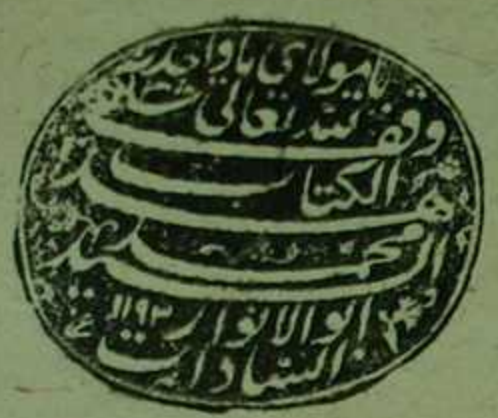 يامولاي ياواحد
وقف لله تعالى
هذا الكتاب
السيد محمد
ابو الانوار ١١٩٣
السادات